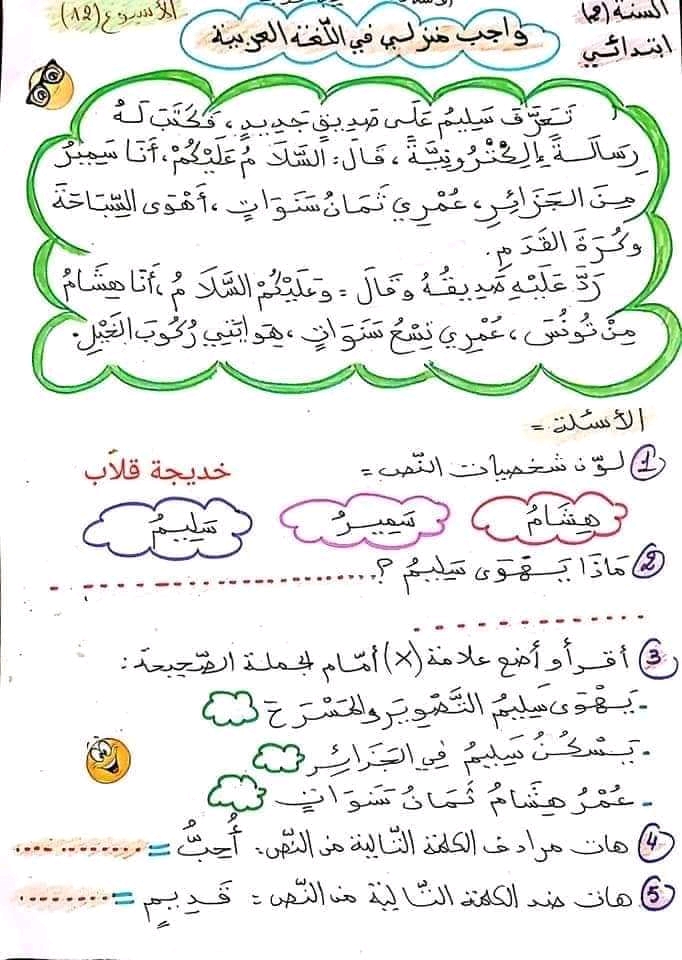 السنة (2) ابتدائي
الأسبوع (12)
واجب منزلي في اللّغة العربية
تَعَرَّفَ سَلِيمُ عَلَى صَدِيقٍ جَدِيدٍ، فَكَتَبَ لَهُ
رِسَالَةً إِلِكْتْرُونِيَّةً، قَالَ: السَّلَامُ عَلَيْكُمْ، أَنَا سَمِيرُ
مِنَ الجَزَائِرِ، عُمْرِي ثَمَانُ سَنَوَاتٍ، أَهْوَى السِّبَاحَةَ
وَكُرَةَ القَدَمِ.
رَدَّ عَلَيْهِ صَدِيقُهُ وَقَالَ: وَعَلَيْكُمْ السَّلَامُ، أَنَا هِشَامُ
مِنْ تُونُسَ، عُمْرِي تِسْعُ سَنَوَاتٍ، هِوَايَتِي رُكُوبَ الخَيْلِ.
الأسئلة =
1 لوّن شخصيات النّص =
خديجة قلاب
هِشَامُ سَمِيرُ سَلِيمُ
2 مَاذَا يَهْوَى سَلِيمُ ؟
3 أقرأ و أضع علامة (X) أمام الجملة الصّحيحة :
- يَهْوَى سَلِيمُ التَّصْوِيرَ والمَسْرَحَ
- يَسْكُنُ سَلِيمُ فِي الجَزَائِرِ
- عُمْرُ هِشَامُ ثَمَانُ سَنَوَاتٍ
4 هات مرادف الكلمة التّالية من النّص: أُحِبُّ =
5 هات ضد الكلمة التّالية من النّص = قَدِيمٍ =